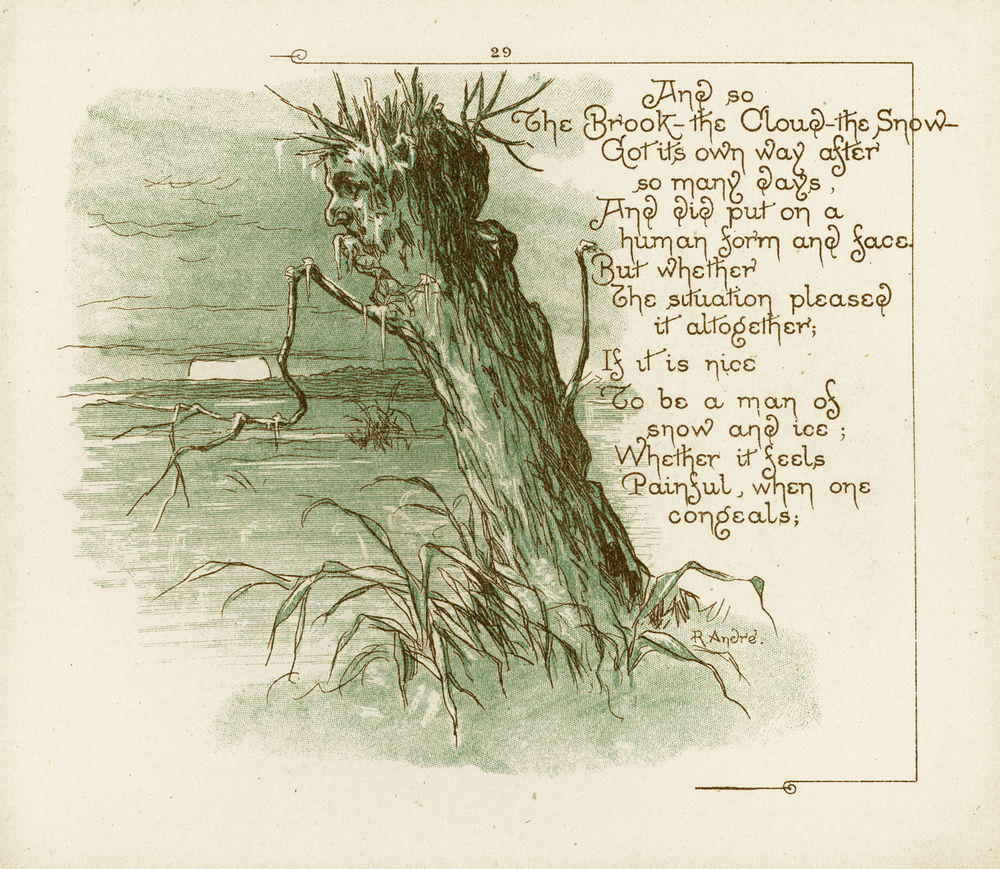 29
And so
The Brook-the Cloud-the Snow-
Got its own way after
so many days,
And did put on a
human form and face.
But whether
The situation pleased
it altogether;
If it is nice
To be a man of
snow and ice;
Whether it feels
Painful, when one
congeals;
R. André.